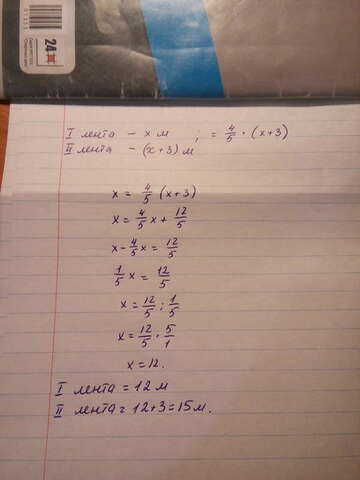 24
I лента - х м ; = 4/5 · (х+3)
II лента - (х+3) м
х = 4/5 (х+3)
х = 4/5 х + 12/5
х - 4/5 х = 12/5
1/5 х = 12/5
х = 12/5 : 1/5
х = 12/5 · 5/1
х = 12.
I лента = 12 м
II лента = 12+3 = 15 м.